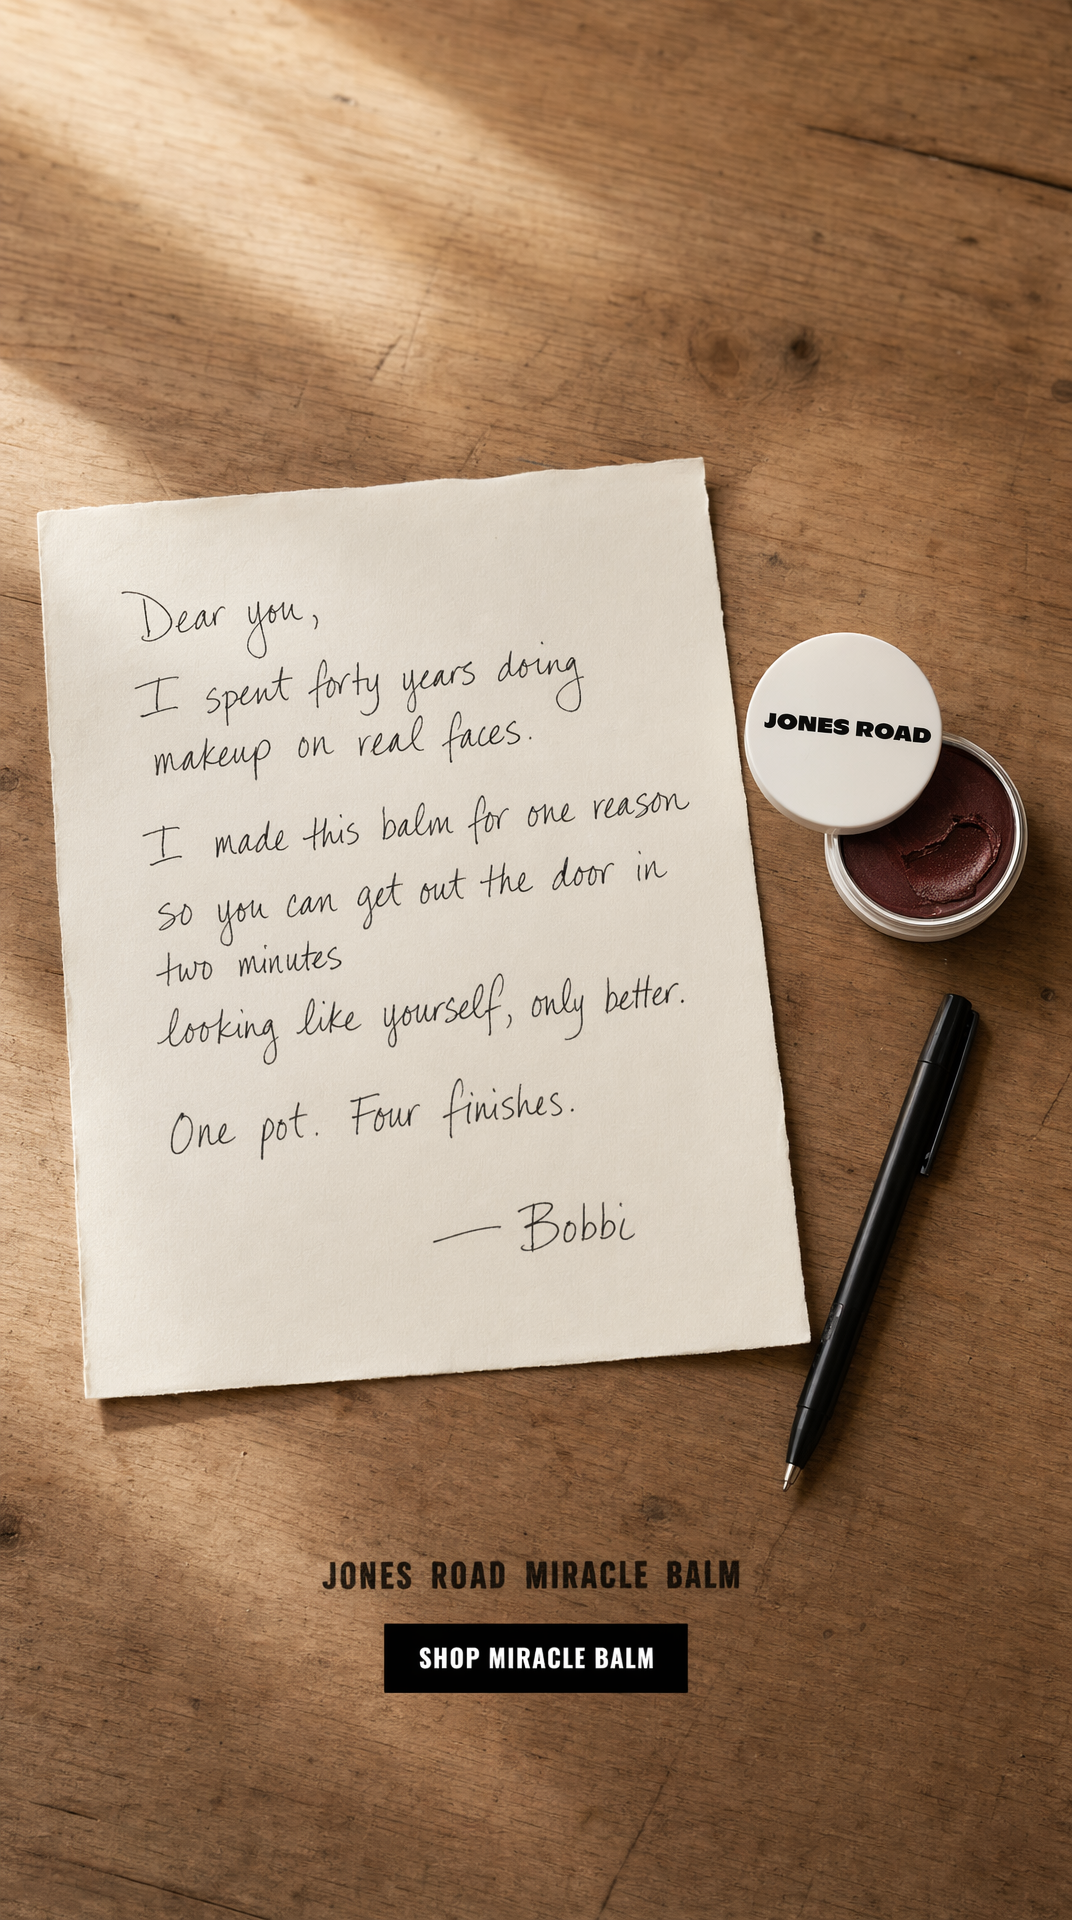 Dear you,
I spent forty years doing
makeup on real faces.
I made this balm for one reason
so you can get out the door in
two minutes
looking like yourself, only better.
One pot. Four finishes.
— Bobbi
JONES ROAD
JONES ROAD MIRACLE BALM
SHOP MIRACLE BALM